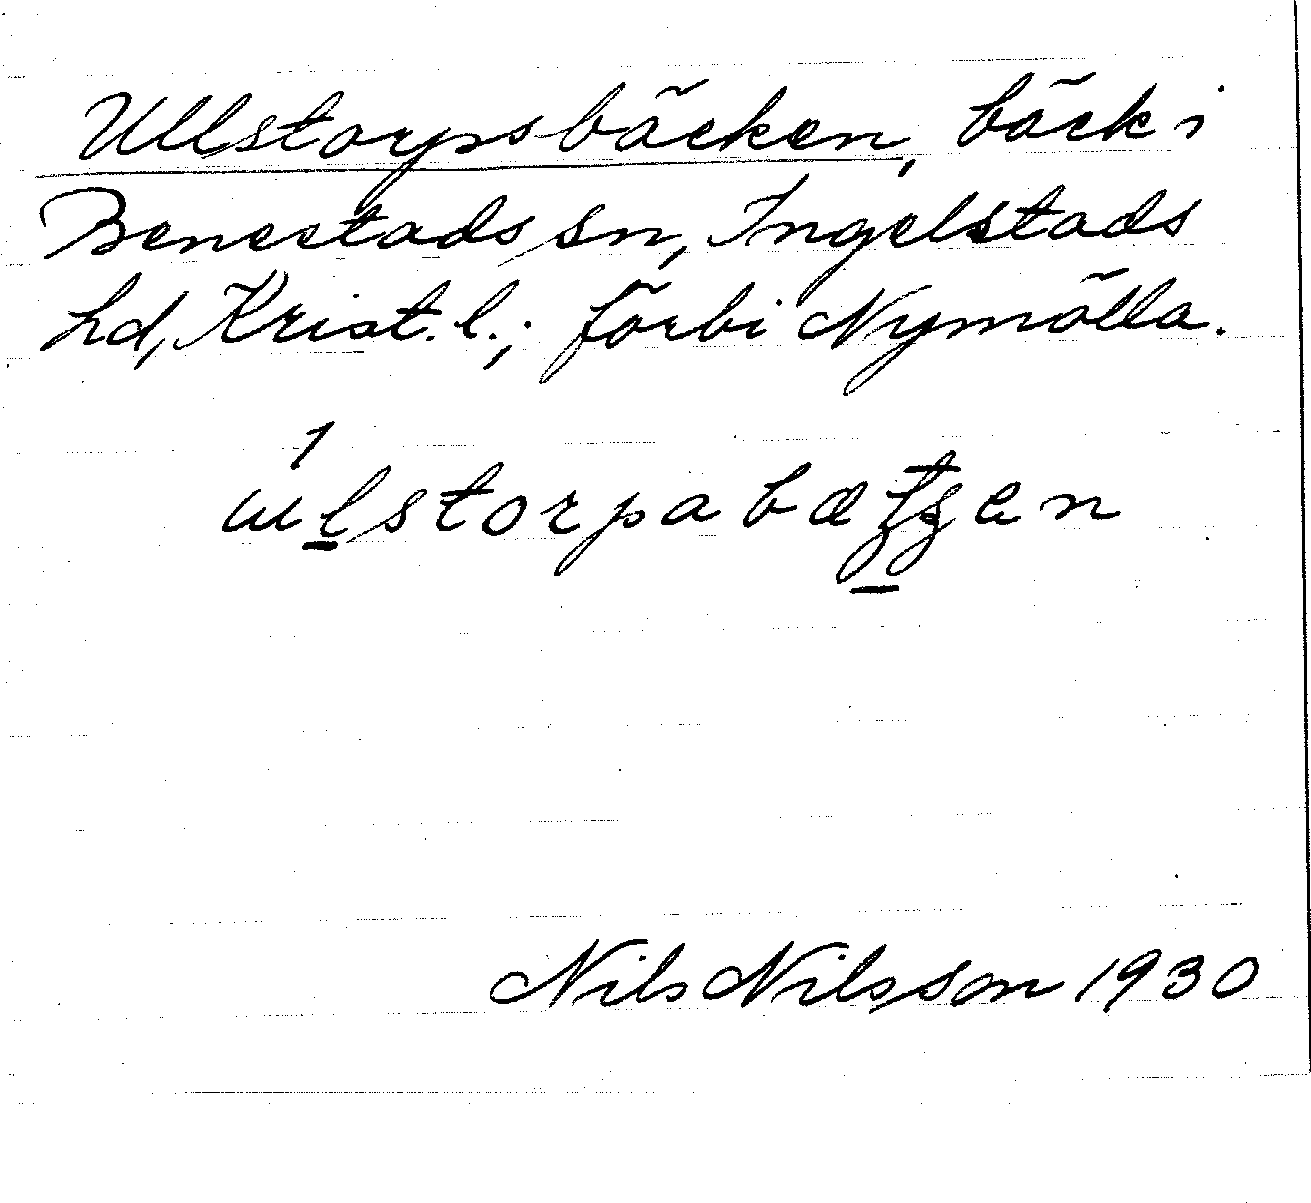 Ullstorpsbäcken, bäck i
Benestads sn, Ingelstads
hd, Krist. l.; förbi Nymölla.
Nils Nilsson 1930